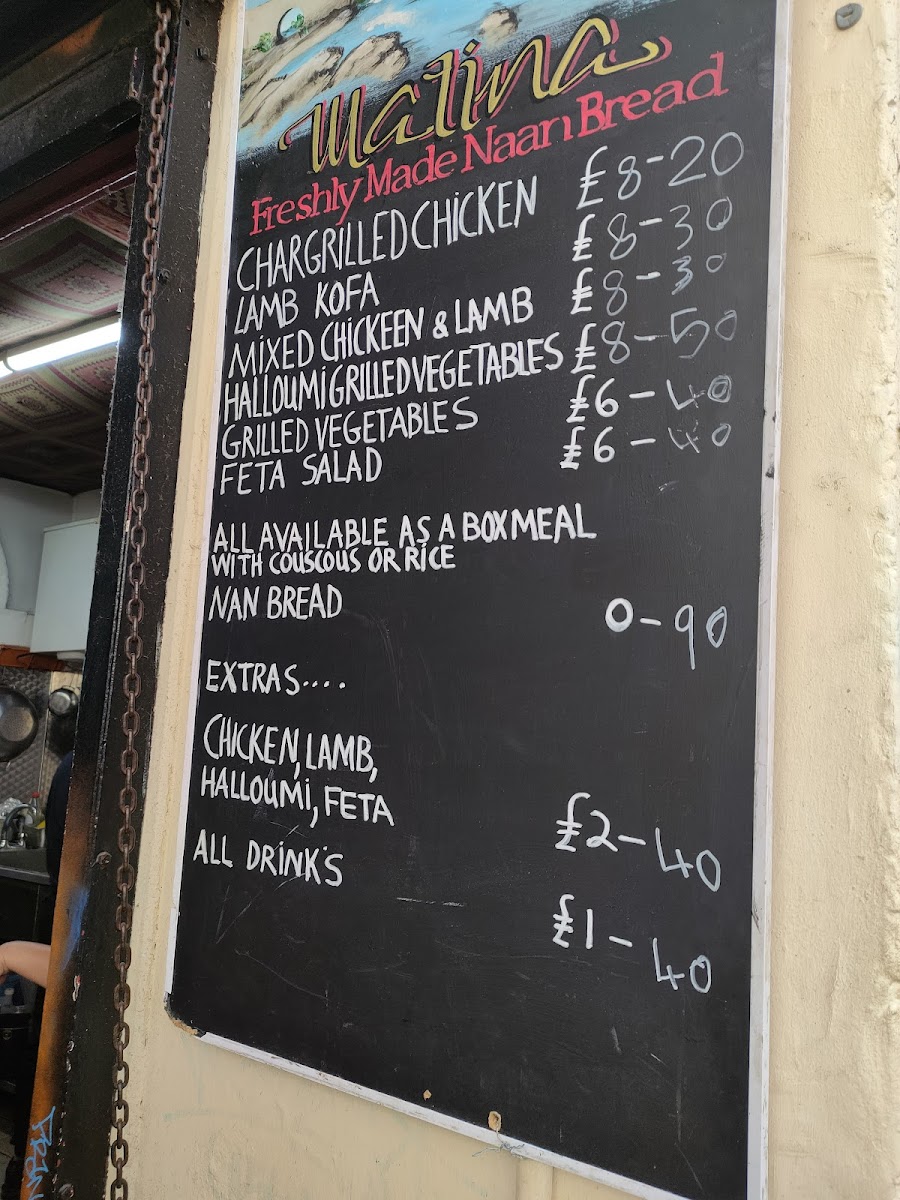 Matina
Freshly Made Naan Bread
CHARGRILLED CHICKEN £8-20
LAMB KOFA £8-30
MIXED CHICKEEN & LAMB £8-30
HALLOUMI GRILLED VEGETABLES £8-50
GRILLED VEGETABLES £6-40
FETA SALAD £6-40
ALL AVAILABLE AS A BOX MEAL
WITH COUSCOUS OR RICE
NAN BREAD 0-90
EXTRAS....
CHICKEN, LAMB,
HALLOUMI, FETA £2-40
ALL DRINK'S £1-40